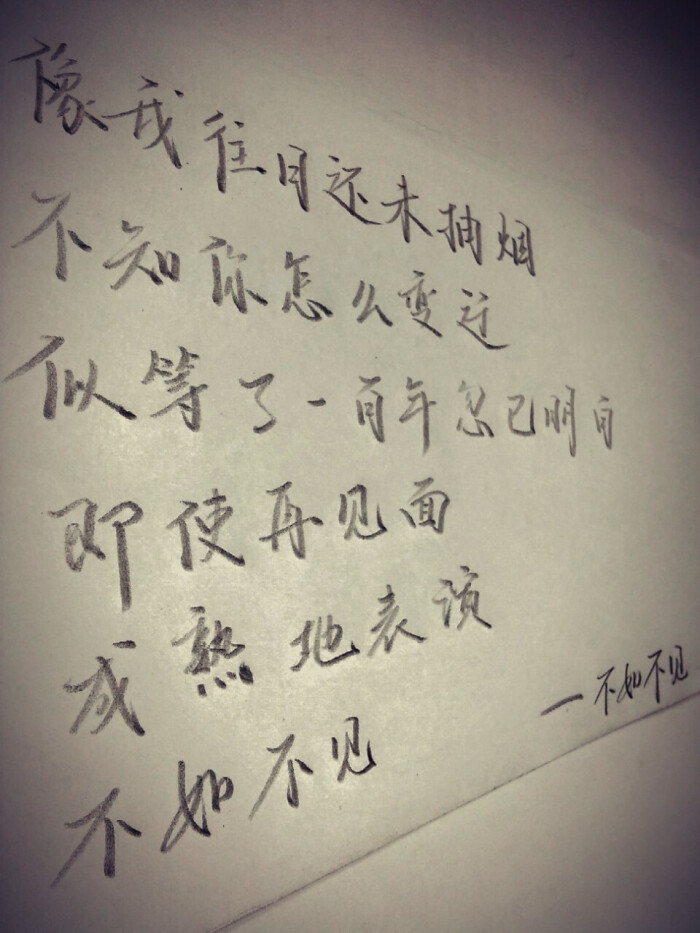 像我往日还未抽烟
不知你怎么变迁
似等了一百年忽已明白
即使再见面
成熟地表演
不如不见
一不如不见